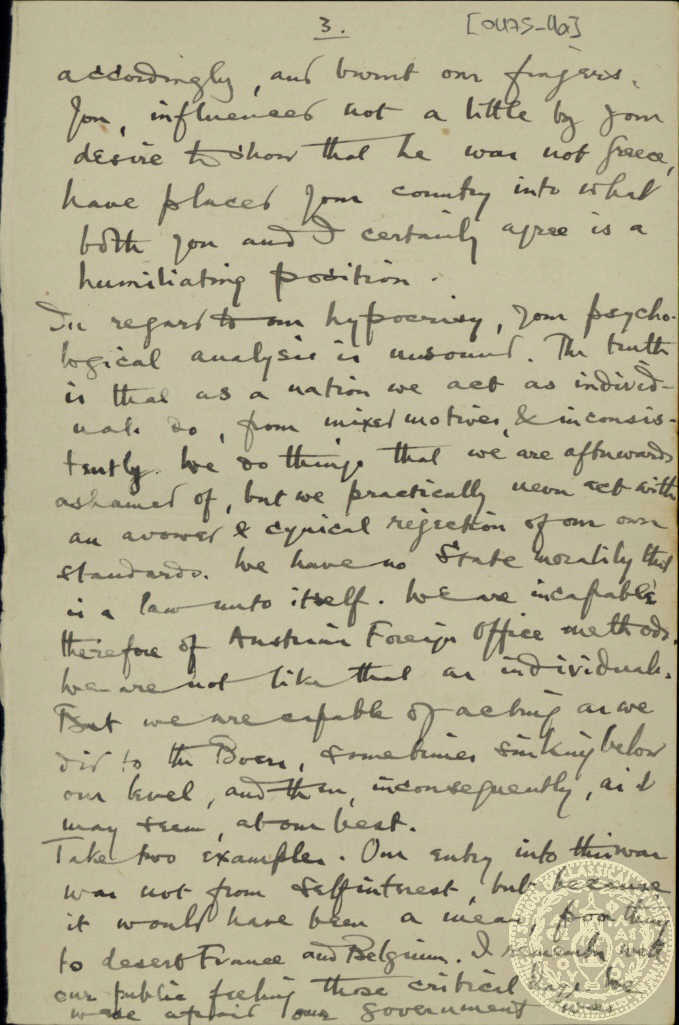 3.
[0475-11a]
accordingly, and burnt our fingers.
You, influenced not a little by your
desire to show that he was not Greece,
have placed your country into what
both you and I certainly agree is a
humiliating position.
In regard to our hypocrisy, your psycho-
logical analysis is unsound. The truth
is that as a nation we act as individ-
uals do, from mixed motives, & inconsis-
tently. We do things that we are afterwards
ashamed of, but we practically never act with
an avowed & cynical rejection of our own
standards. We have no State morality that
is a law unto itself. We are incapable
therefore of Austrian Foreign Office methods.
We are not like that as individuals.
But we are capable of acting as we
did to the Boers, sometimes sinking below
our level, and then, inconsequently, as it
may seem, at our best.
Take two examples. Our entry into this war
was not from self interest, but because
it would have been a mean, poor thing
to desert France and Belgium. I remember well
our public feeling those critical days. We
were afraid our government was